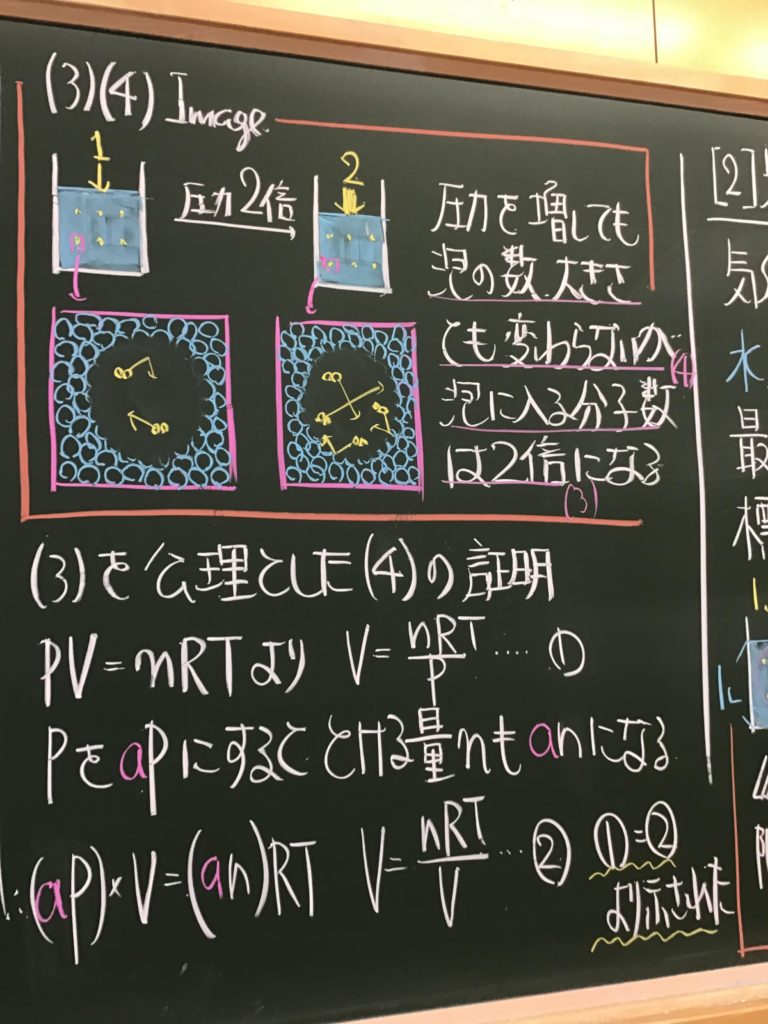 (3)(4) Image
1
圧力2倍
2
圧力を増しても
泡の数、大きさ
とも変わらないが
(4)
泡に入る分子数
は2倍になる
(3)
(3)を公理とした(4)の証明
PV=nRTより V=nRT/P ‥‥ ①
PをaPにすると とける量nもanになる
(aP)×V=(an)RT V=nRT/V ‥‥ ② ①=②
より示された
[2]
気
水
最
標
1L